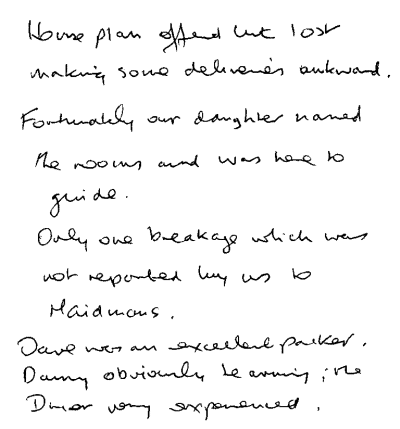 House plan offered but lost
making some deliveries awkward.
Fortunately our daughter named
the rooms and was here to
guide.
Only one breakage which was
not reported by us to
Maidmans.
Dave was an excellent packer.
Danny obviously learning; the
Driver very experienced.